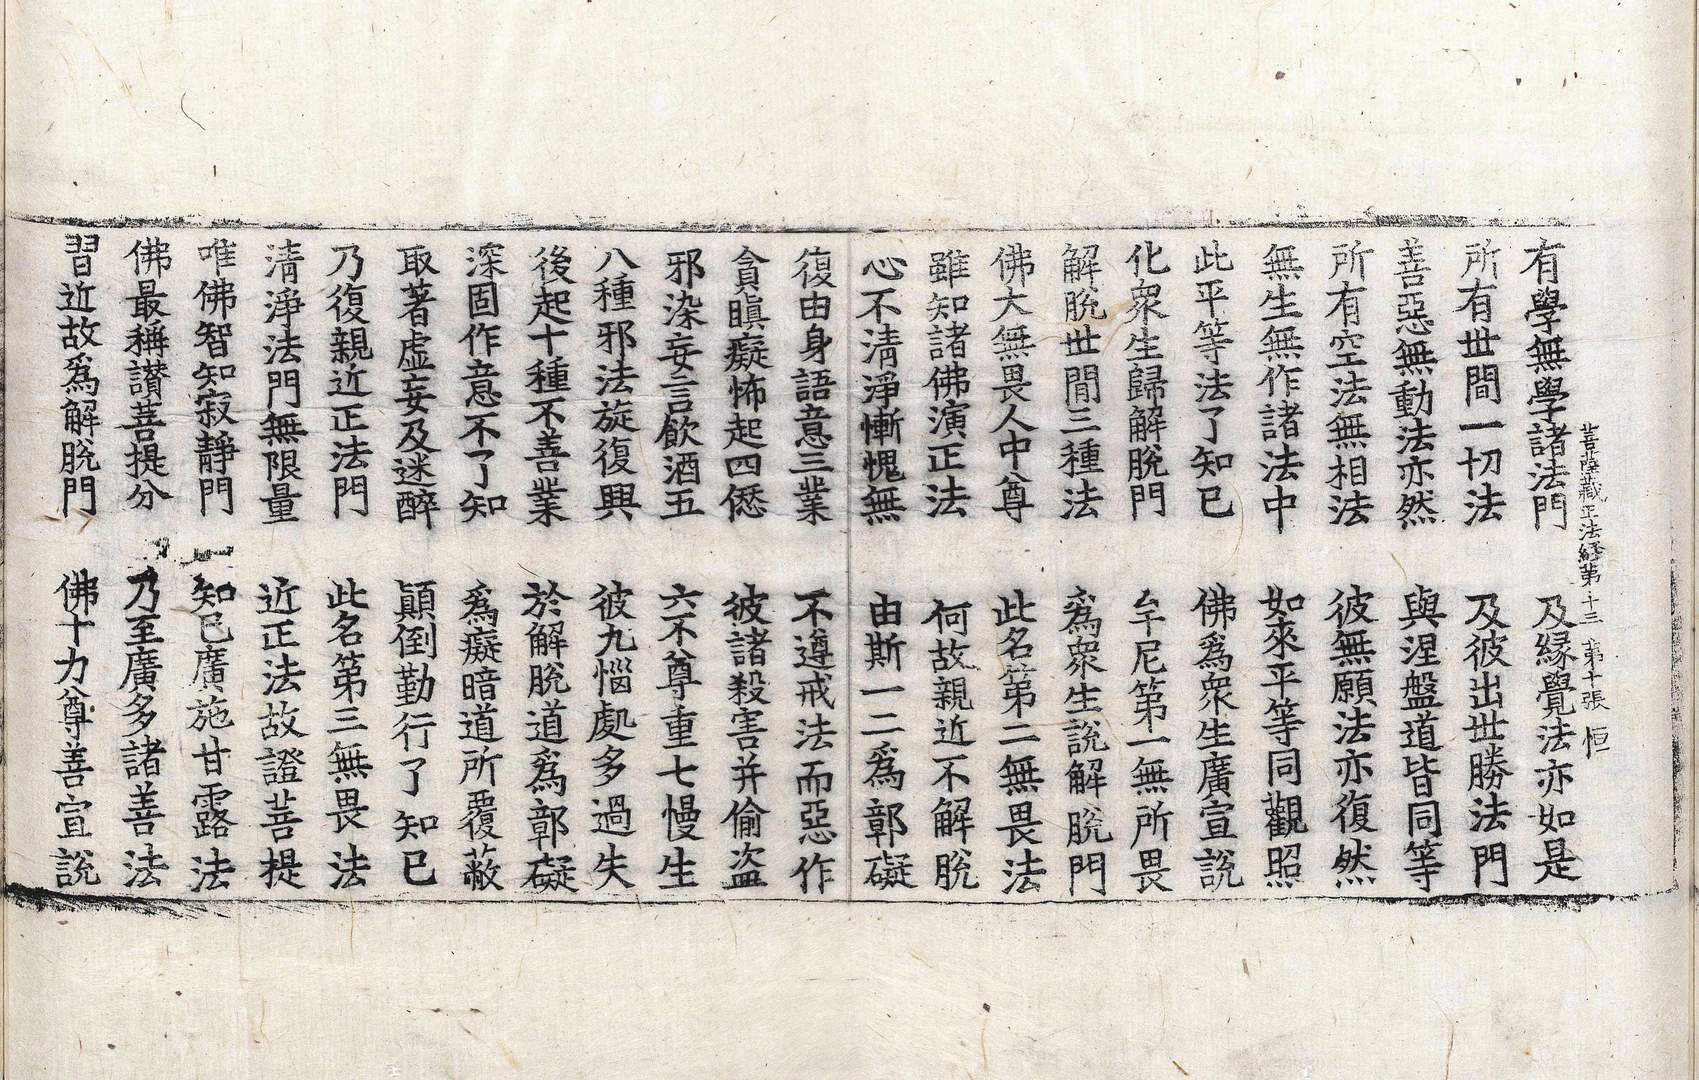 菩薩藏正法經第十三 第十張 恒
有學無學諸法門 及緣覺法亦如是
所有世間一切法 及彼出世勝法門
善惡無動法亦然 與涅盤道皆同等
所有空法無相法 彼無願法亦復然
無生無作諸法中 如來平等同觀照
此平等法了知已 佛爲衆生廣宣說
化衆生歸解脫門 牟尼第一無所畏
解脫世間三種法 爲衆生說解脫門
佛大無畏人中尊 此名第二無畏法
雖知諸佛演正法 何故親近不解脫
心不清淨慚愧無 由斯一二爲鄣礙
復由身語意三業 不遵戒法而惡作
貪瞋癡怖起四僁 彼諸殺害并偷盜
邪染妄言飮酒五 六不尊重七慢生
八種邪法旋復興 彼九惱處多過失
後起十種不善業 於解脫道爲鄣礙
深固作意不了知 爲癡暗道所覆蔽
取著虛妄及迷醉 顚倒勤行了知已
乃復親近正法門 此名第三無畏法
清淨法門無限量 近正法故證菩提
唯佛智知寂靜門 知已廣施甘露法
佛最稱讃菩提分 乃至廣多諸善法
習近故爲解脫門 佛十力尊善宣說